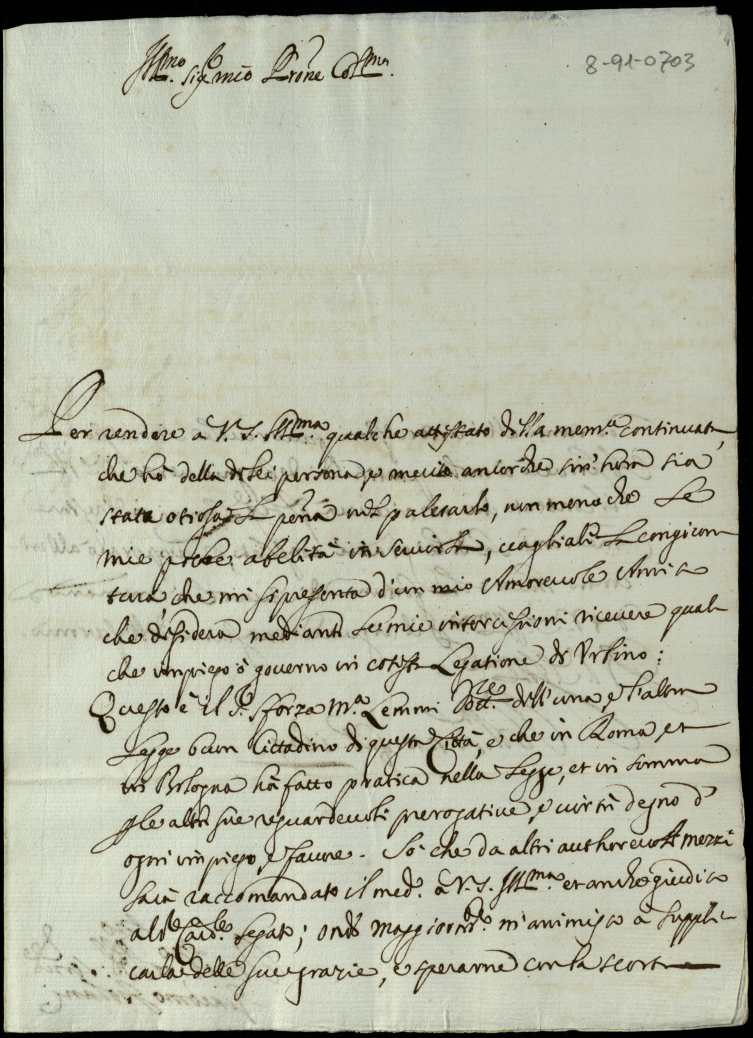 Ill.mo Sig.r mio P.rone Coll.mo
8-91-0703
Per rendere à V. S. Ill.ma qualche attestato della mem.a continuata,
che hò della di lei persona, e merito ancorche sin hora sia
stata otiosa la penna nel palesarlo, non meno che le
mie poche abelità in servirla, vagliali la congion
tura, che mi si presenta d'un mio Amorevole Amico
che desidera mediante le mie intercessioni ricevere qual
che impiego ò governo in cotesta Legatione di Urbino:
Questo è il S.r Sforza M.a Lemmi Dott.re dell'una, e l'altra
Legge buon Cittadino di questa Città, e che in Roma, et
in Bologna hà fatto pratica nella Legge, et in somma
p le altre sue riguardevoli prerogative, e virtù degno d'
ogni impiego, e favore. Sò che da altri authorevoli mezzi
sarà raccomandato il med.o à V. S. Ill.ma et anche giudico
al S.r Card.le Legato; onde maggiorm.te m'animisco à suppli
carla delle sue grazie, e sperarne con la scorta